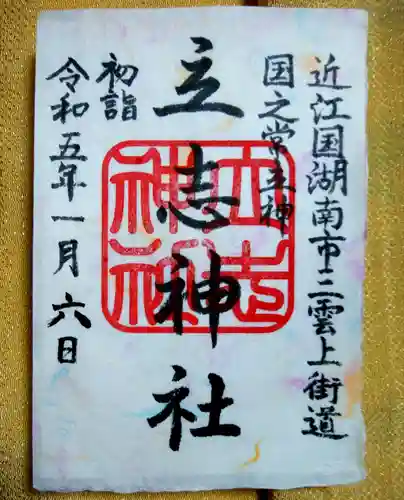 近江国湖南市三雲上街道
国之常立神
立志神社
初詣
令和五年一月六日
立志神社